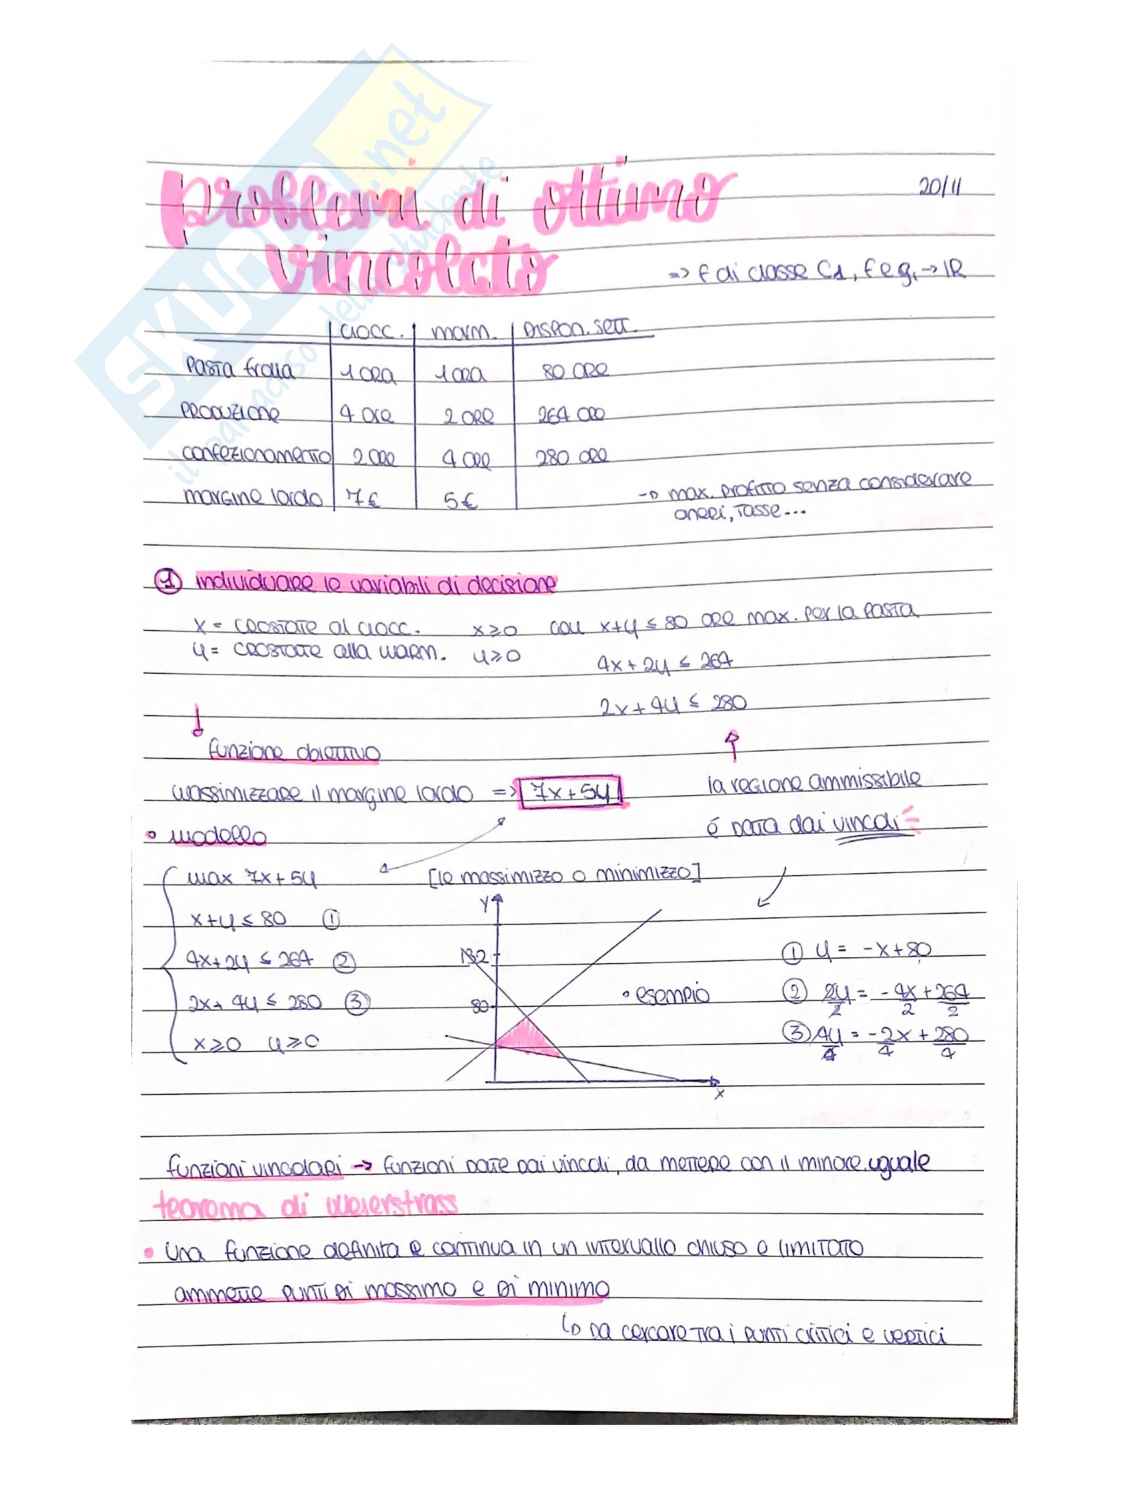 SKUOLA.net
il paradiso dello studente
problemi di ottimo vincolato
20/11
=> f di classe C1, f e g, → IR
ciocc. | marm. | Dispon. sett.
Pasta frolla | 1 ora | 1 ora | 80 ore
Produzione | 4 ore | 2 ore | 264 ore
confezionamento | 2 ore | 4 ore | 280 ore
margine lordo | 7€ | 5€
→ max. profitto senza considerare
oneri, tasse...
① individuare le variabili di decisione
x = crostate al ciocc. x≥0 con x+y ≤ 80 ore max. per la pasta
y = crostate alla marm. y≥0 4x+2y ≤ 264
2x+4y ≤ 280
↓ ↑
funzione obiettivo
massimizzare il margine lordo => 7x+5y la regione ammissibile
• modello é data dai vincoli
max 7x+5y [le massimizzo o minimizzo]
x+y ≤ 80 ①
4x+2y ≤ 264 ②
2x+4y ≤ 280 ③
x≥0 y≥0
y
132
80
x
• esempio
① y = -x+80
② 2y/2 = -4x/2 + 264/2
③ 4y/4 = -2x/4 + 280/4
funzioni vincolari → funzioni date dai vincoli, da mettere con il minore uguale
teorema di weierstrass
• Una funzione definita e continua in un intervallo chiuso e limitato
ammette punti di massimo e di minimo
↳ da cercare tra i punti critici e vertici